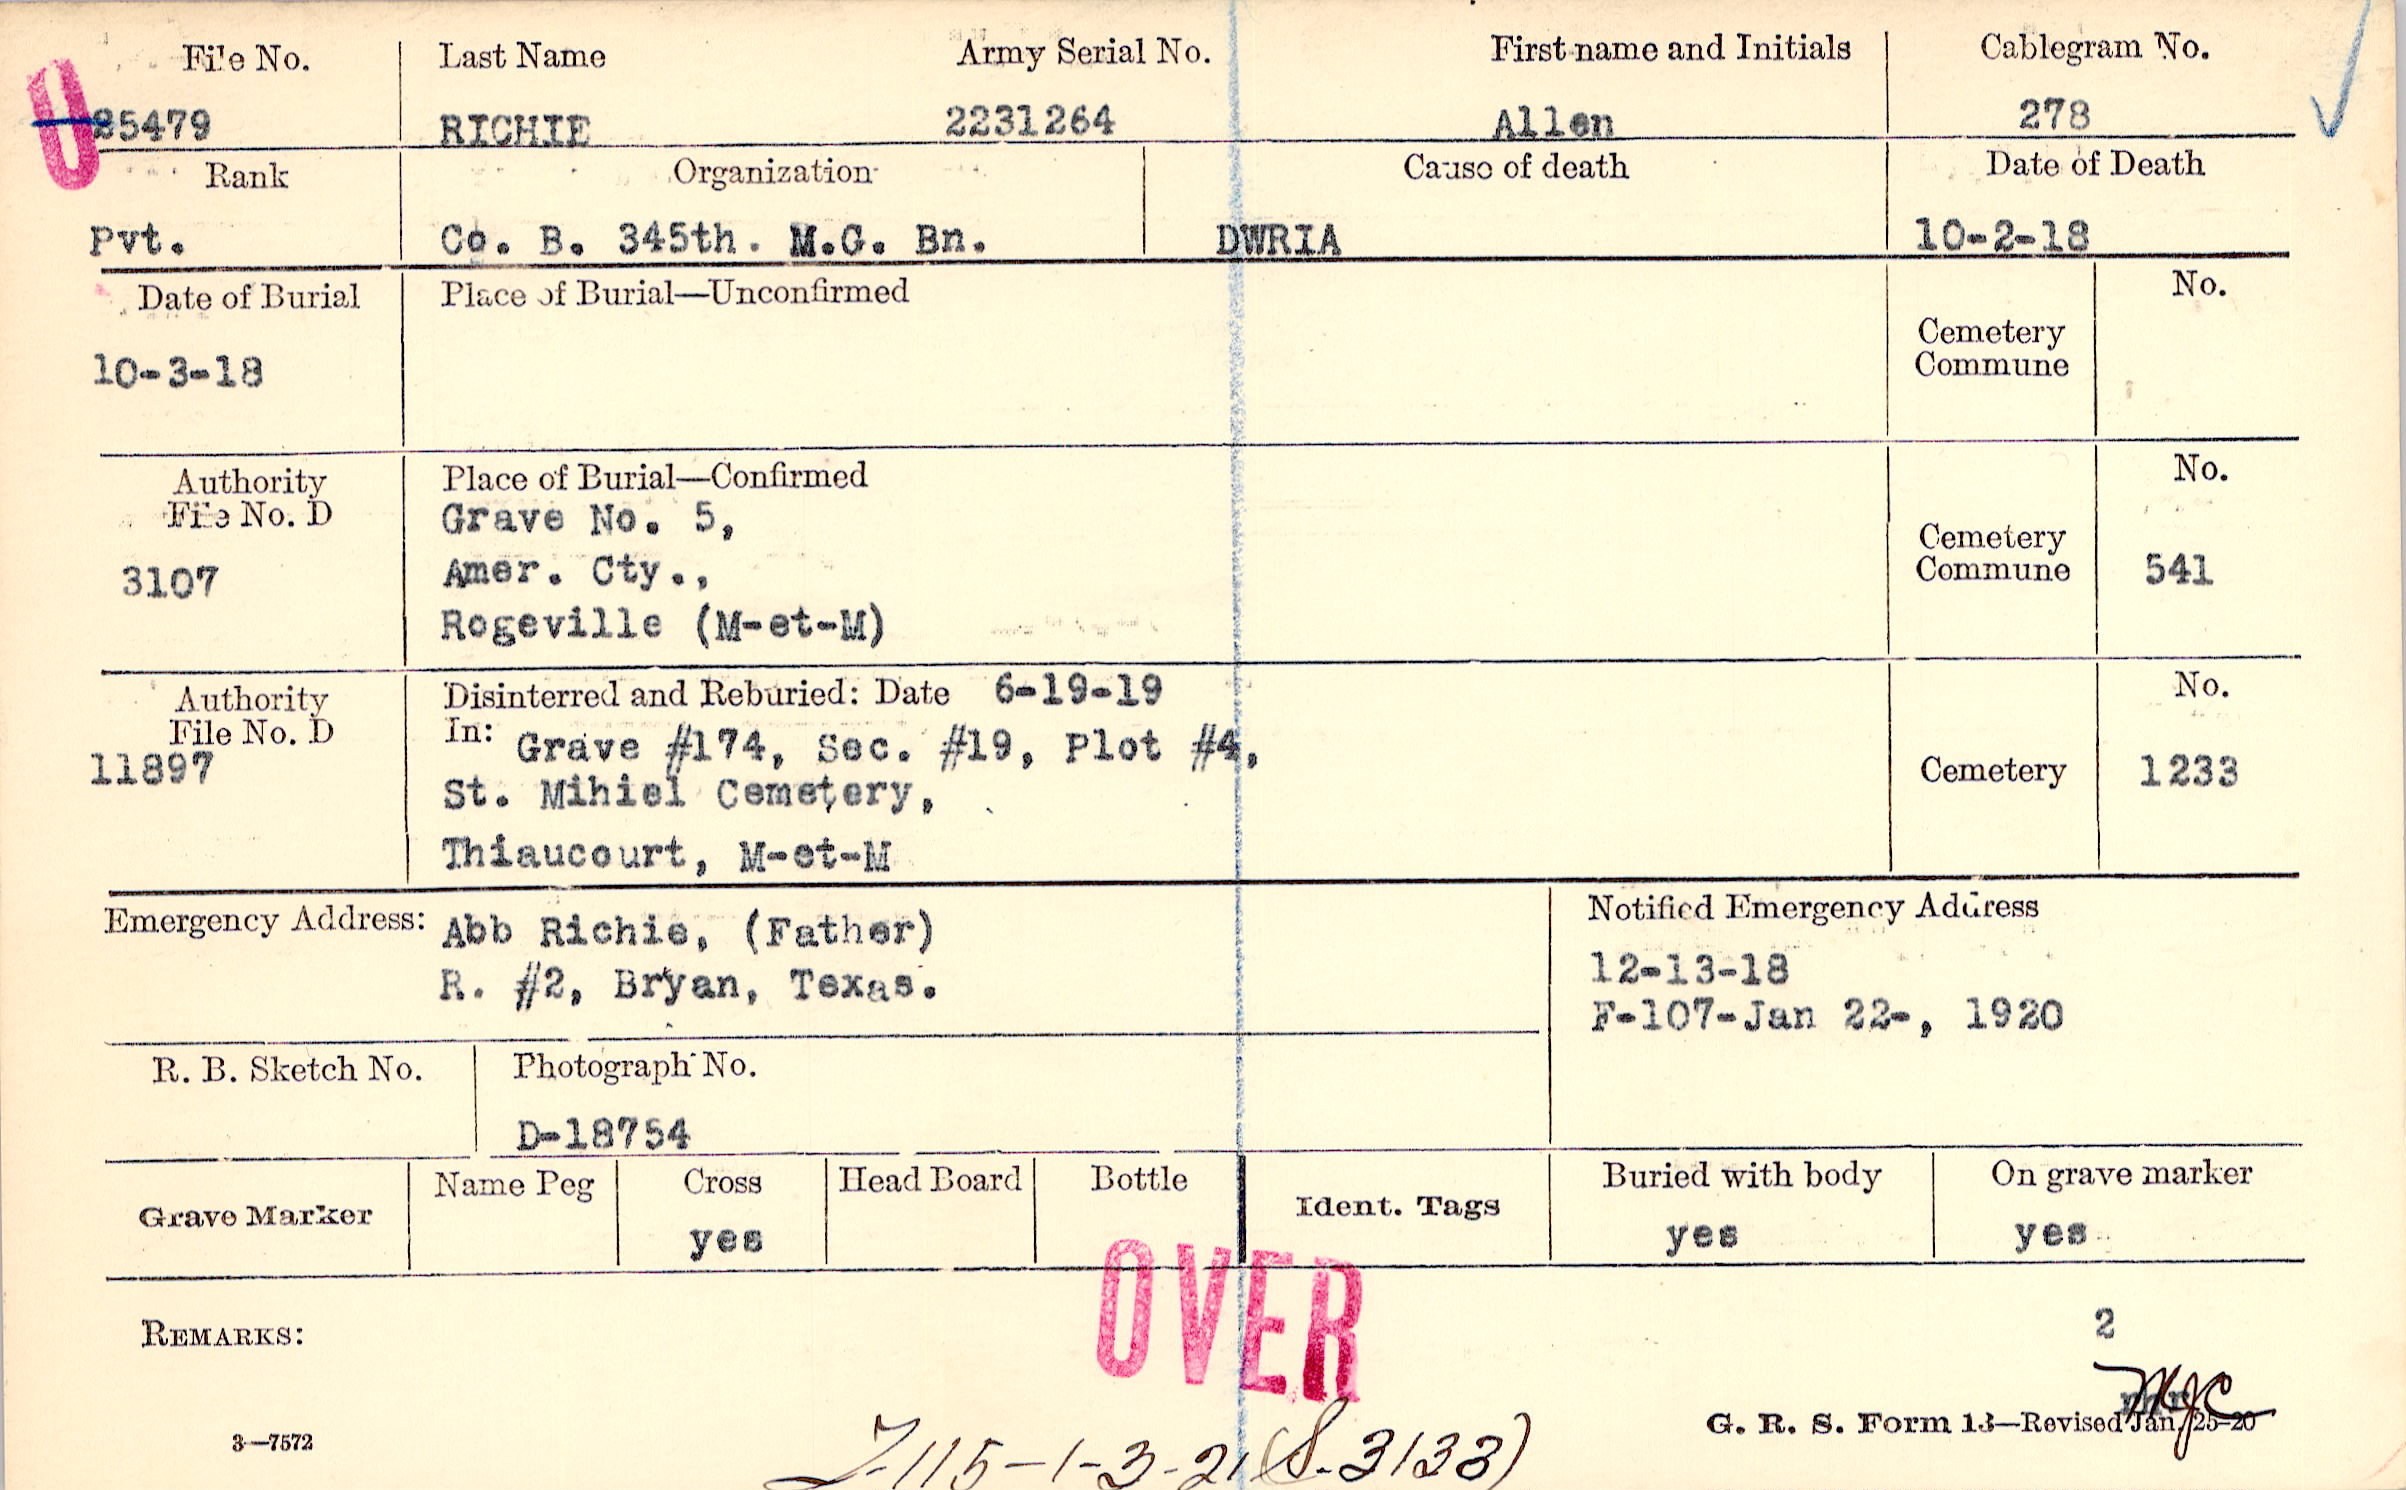 File No. Last Name Army Serial No. First name and Initials Cablegram No.
U
85479 RICHIE 2231264 Allen 278
Rank Organization Cause of death Date of Death
Pvt. Co. B. 345th. M.G. Bn. DWRIA 10-2-18
Date of Burial Place of Burial—Unconfirmed No.
10-3-18 Cemetery
Commune
Authority Place of Burial—Confirmed No.
File No. D Grave No. 5,
3107 Amer. Cty., Cemetery
Commune 541
Rogeville (M-et-M)
Authority Disinterred and Reburied: Date 6-19-19 No.
File No. D In: Grave #174, Sec. #19, Plot #4,
11897 St. Mihiel Cemetery, Cemetery 1233
Thiaucourt, M-et-M
Emergency Address: Abb Richie, (Father) Notified Emergency Address
R. #2, Bryan, Texas. 12-13-18
F-107-Jan 22-, 1920
R. B. Sketch No. Photograph No.
D-18754
Grave Marker Name Peg Cross Head Board Bottle Ident. Tags Buried with body On grave marker
yes yes yes
OVER
REMARKS: 2
MJC
3—7572 G. R. S. Form 13—Revised Jan. 25-20
-115-1-3-21 (S-3133)